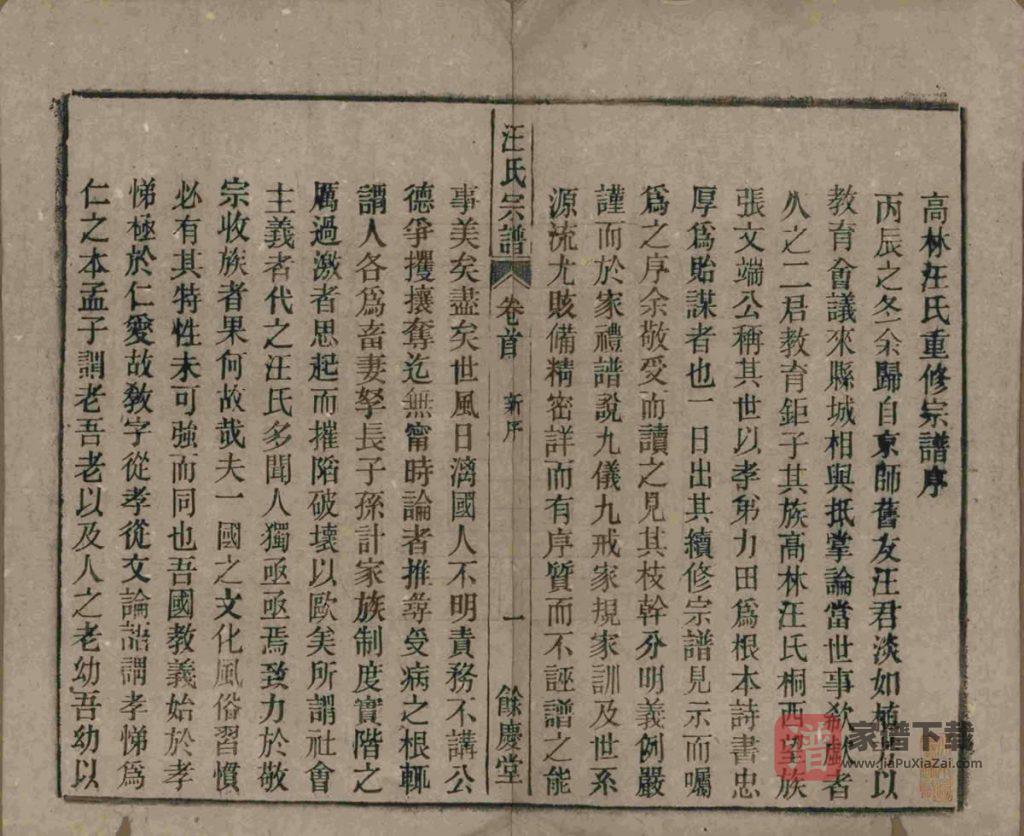 高林汪氏重修宗譜序
丙辰之冬余歸自京師舊友汪君淡如植以
教育會議來縣城相與抵掌論當世事欷歔者
久之二君教育鉅子其族高林汪氏桐西望族
張文端公稱其世以孝弟力田為根本詩書忠
厚為貽謀者也一日出其續修宗譜見示而囑
為之序余敬受而讀之見其枝幹分明義例嚴
謹而於家禮譜說九儀九戒家規家訓及世系
源流尤賅備精密詳而有序質而不誣譜之能
汪氏宗譜 卷首 新序 一 餘慶堂
事美矣盡矣世風日漓國人不明責務不講公
德爭攫攘奪迄無甯時論者推尋受病之根輒
謂人各為畜妻孥長子孫計家族制度實階之
厲過激者思起而摧陷破壞以歐矣所謂社會
主義者代之汪氏多聞人獨亟亟焉致力於敬
宗收族者果何故哉夫一國之文化風俗習慣
必有其特性未可強而同也吾國教義始於孝
悌極於仁愛故教字從孝從文論語謂孝悌為
仁之本孟子謂老吾老以及人之老幼吾幼以
譜
家谱下载
www.JiaPuXiaZai.com